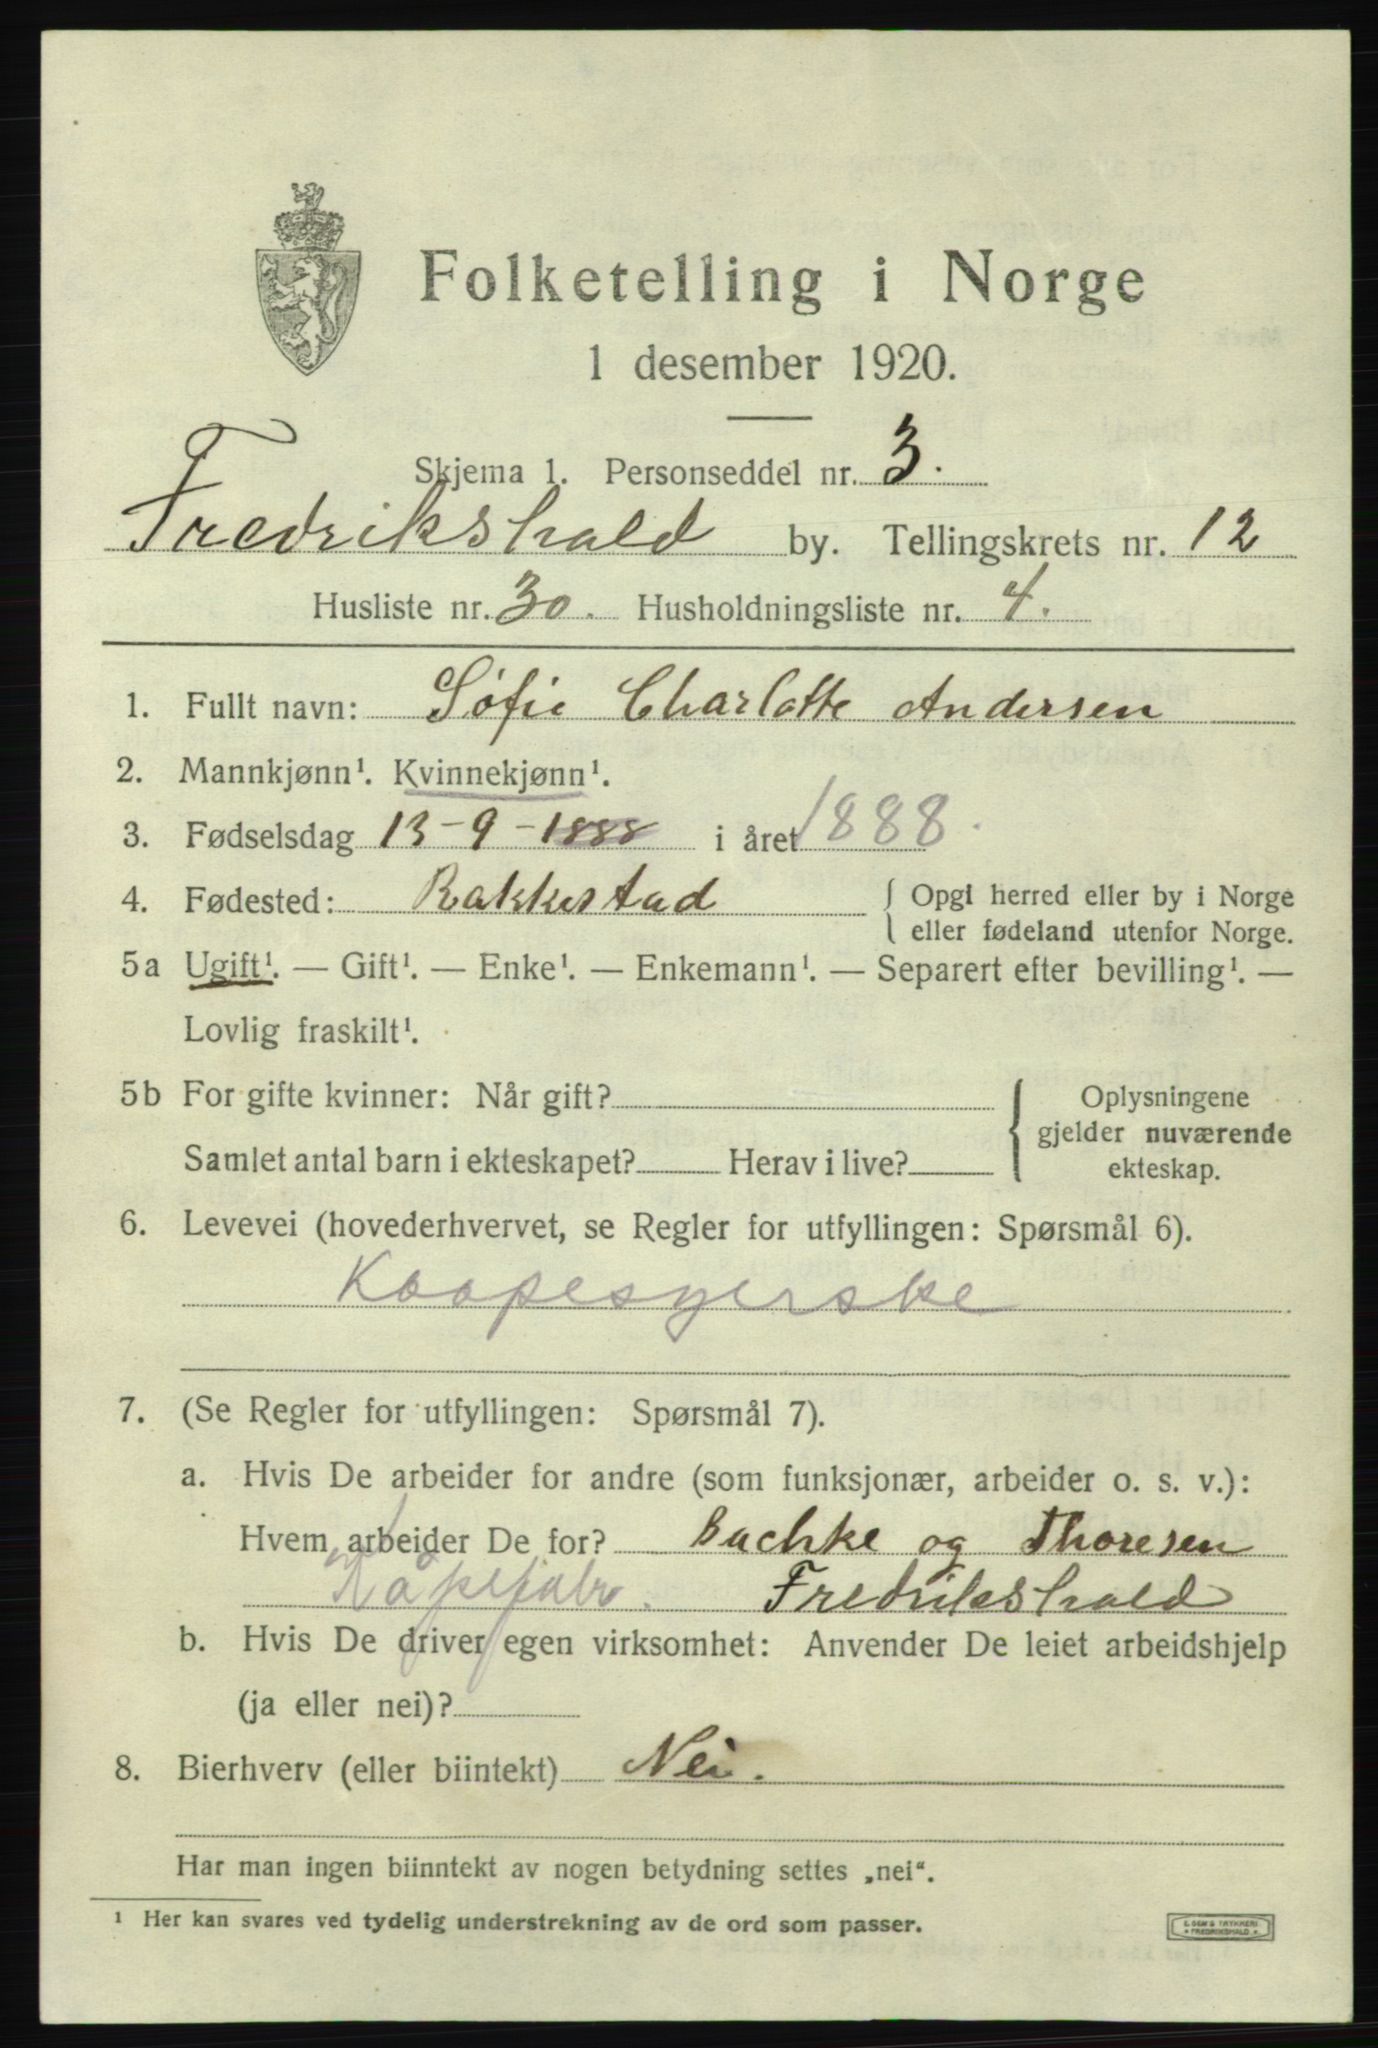 Folketelling i Norge
1 desember 1920.
Skjema 1. Personseddel nr. 3.
Fredrikshald by. Tellingskrets nr. 12
Husliste nr. 30. Husholdningsliste nr. 4.
1. Fullt navn: Søfie Charlotte Andersen
2. Mannkjønn¹. Kvinnekjønn¹.
3. Fødselsdag 13-9-1888 i året 1888.
4. Fødested: Rakkestad { Opgi herred eller by i Norge
eller fødeland utenfor Norge.
5a Ugift¹. — Gift¹. — Enke¹. — Enkemann¹. — Separert efter bevilling¹. —
Lovlig fraskilt¹.
5b For gifte kvinner: Når gift? { Oplysningene
gjelder nuværende
Samlet antal barn i ekteskapet? Herav i live? ekteskap.
6. Levevei (hovederhvervet, se Regler for utfyllingen: Spørsmål 6).
Kaapesyerske
7. (Se Regler for utfyllingen: Spørsmål 7).
a. Hvis De arbeider for andre (som funksjonær, arbeider o. s. v.):
Hvem arbeider De for? Buchke og Thoresen
Kåpefabr. Fredrikshald
b. Hvis De driver egen virksomhet: Anvender De leiet arbeidshjelp
(ja eller nei)?
8. Bierhverv (eller biintekt) Nei.
Har man ingen biinntekt av nogen betydning settes „nei“.
¹ Her kan svares ved tydelig understrekning av de ord som passer.